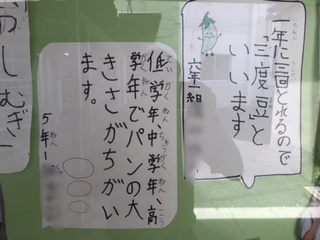 一年に三回とれるので
「三度豆」と
いいます
六年一組
低学年、中学年、高
学年でパンの大
きさがちがい
ます。
5年1
のしむぎ